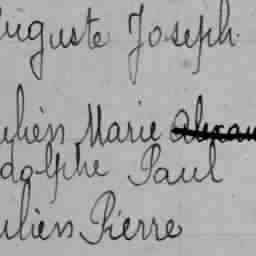 Auguste Joseph
Julien Marie
Adolphe Paul
Julien Pierre